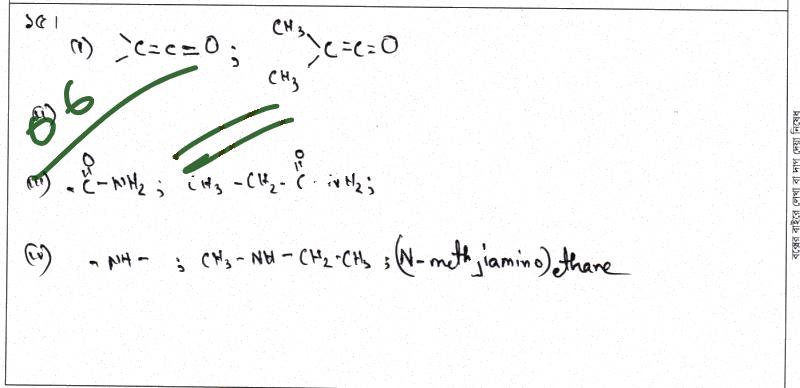 ১৫।
(i) >C=C=O ; CH₃ CH₃ >C=C=O
(ii)
06
(iii) -C(=O)-NH₂ ; CH₃-CH₂-C(=O)-NH₂ ;
(iv) -NH- ; CH₃-NH-CH₂-CH₃ ; (N-methylamino)ethane
বক্সের বাইরে লেখা বা দাগ দেয়া নিষেধ